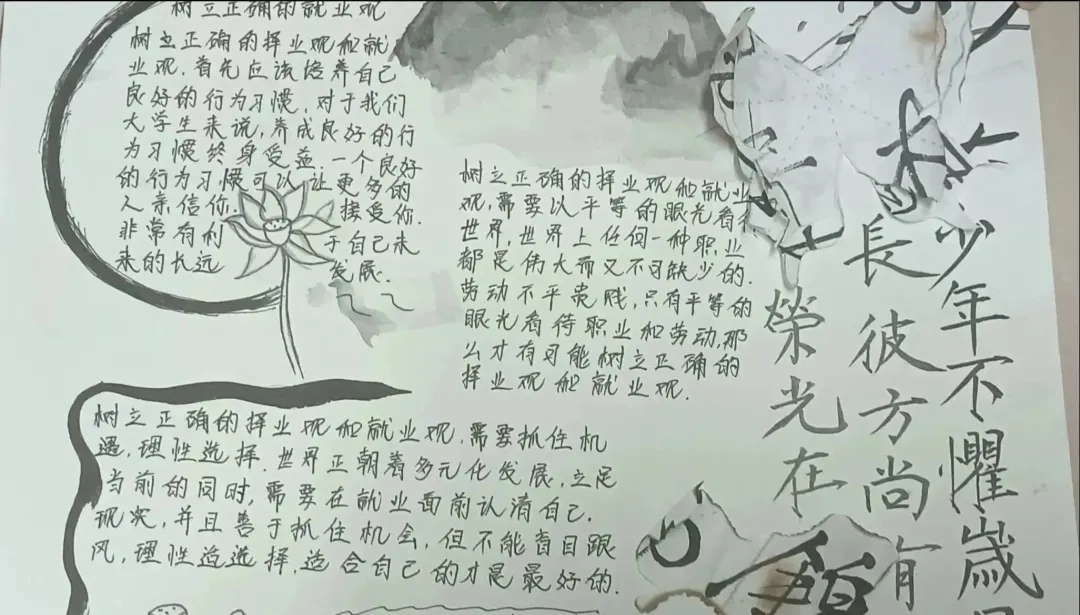 树立正确的就业观
树立正确的择业观和就
业观，首先应该培养自己
良好的行为习惯，对于我们
大学生来说，养成良好的行
为习惯终身受益.一个良好
的行为习惯可以让更多的
人亲信你.接受你.
非常有利于自己未
来的长远发展.
树立正确的择业观和就业
观，需要以平等的眼光看
世界，世界上任何一种职业
都是伟大而又不可缺少的.
劳动不平贵贱，只有平等的
眼光看待职业和劳动，那
么才有可能树立正确的
择业观和就业观.
树立正确的择业观和就业观，需要抓住机
遇，理性选择.世界正朝着多元化发展，立足
当前的同时，需要在就业面前认清自己.
现实，并且善于抓住机会，但不能盲目跟
风，理性选择，适合自己的才是最好的.
少年不懼歲
長彼方尚有
榮光在